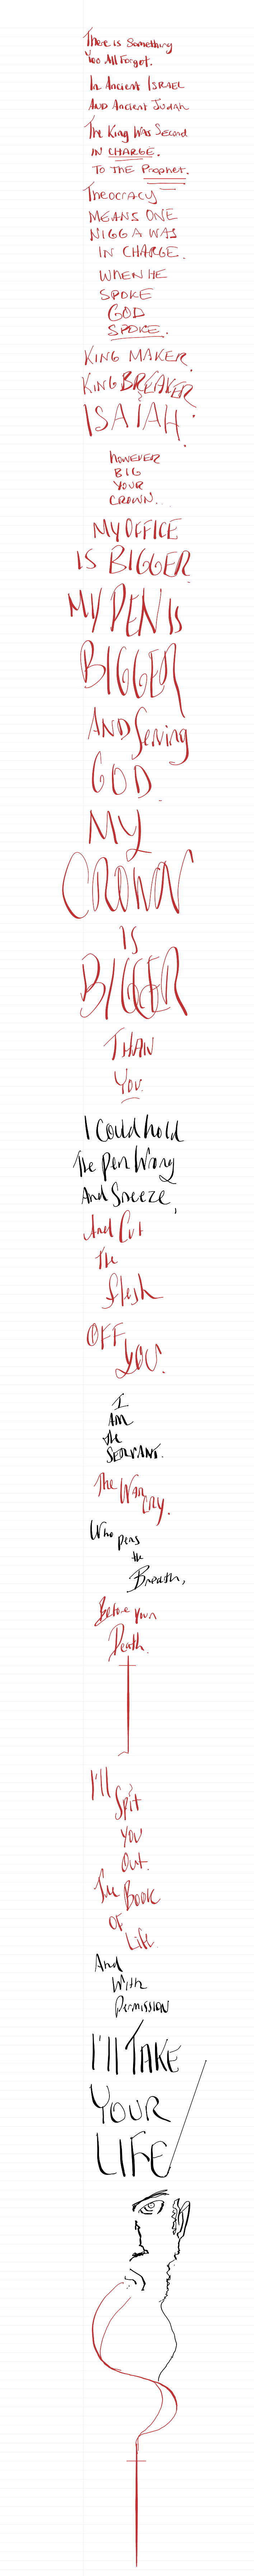 There is Something
Yoo All Forget.
In Ancient ISRAEL
AND Ancient Judah
The King Was Second
IN CHARGE.
TO THE Prophet.
Theocracy
MEANS ONE
NIGGA WAS
IN CHARGE.
WHEN HE
SPOKE
GOD
SPOKE.
KING MAKER.
KING BREAKER.
ISAIAH.
HOWEVER
BIG
YOUR
CROWN.
MY OFFICE
IS BIGGER.
MY PEN IS
BIGGER
AND Serving
GOD.
MY
CROWN
IS
BIGGER
THAN
YOU.
I Could hold
The Pen Wrong
And Sneeze,
And Cut
The
flesh
OFF
YOU.
I
AM
the
SERVANT.
The War
cry.
Who pens
the
Breath,
Before your
Death.
I'll
Spit
you
Out.
The BOOK
OF
Life
And
With
Permission
I'll TAKE
YOUR
LIFE